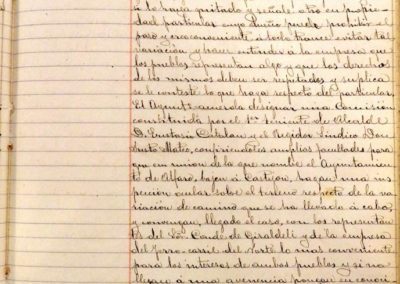 á lo haya quitado y señale otro en propie-
dad particular cuyo Dueño puede prohibir el
paso y cree conveniente á todo trance evitar tal
variacion y hacer entender á la empresa que
los pueblos representan algo y que los derechos
de los mismos deben ser respetados y suplica
se le conteste lo que haya respecto del particular.
El Ayuntº acuerda designar una comision
constituida por el 1er Teniente de Alcalde
D. Eustasio Catalan y el Regidor Sindico Don
Mateo, confiriendoles amplias facultades para
que en union de la que nombre el Ayuntamien-
to de Alfaro, bajen á Castejon, hagan una ins-
peccion ocular sobre el terreno respecto de la va-
riacion de camino que se ha llevado á cabo,
y convengan, llegado el caso, con los representan-
tes del Sor. Conde de Giraldeli y de la empresa
del ferro-carril del Norte lo mas conveniente
para los intereses de ambos pueblos y si no
llegare á una avenencia pongan en conoci-